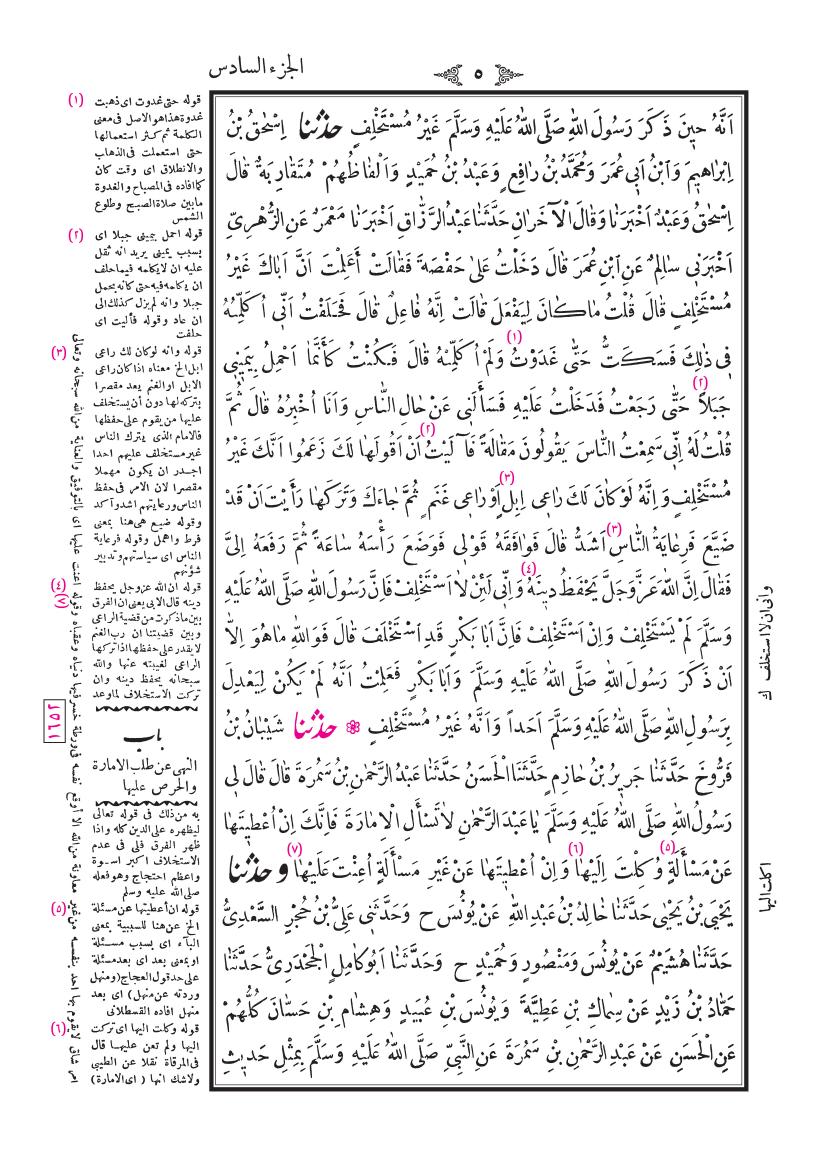 ٥
الجزء السادس
اَنَّهُ حِينَ ذَكَرَ رَسُولَ اللهِ صَلَّى اللهُ عَلَيْهِ وَسَلَّمَ غَيْرُ مُسْتَخْلِفٍ حَدَّثَنَا اِسْحٰقُ بْنُ
اِبْرَاهِيمَ وَابْنُ اَبِى عُمَرَ وَمُحَمَّدُ بْنُ رَافِعٍ وَعَبْدُ بْنُ حُمَيْدٍ وَاَلْفَاظُهُمْ مُتَقَارِبَةٌ قَالَ
اِسْحٰقُ وَعَبْدٌ اَخْبَرَنَا وَقَالَ الْآخَرَانِ حَدَّثَنَا عَبْدُ الرَّزَّاقِ اَخْبَرَنَا مَعْمَرٌ عَنِ الزُّهْرِىِّ
اَخْبَرَنِى سَالِمٌ عَنِ ابْنِ عُمَرَ قَالَ دَخَلْتُ عَلىٰ حَفْصَةَ فَقَالَتْ أَعَلِمْتَ اَنَّ اَبَاكَ غَيْرُ
مُسْتَخْلِفٍ قَالَ قُلْتُ مَاكَانَ لِيَفْعَلَ قَالَتْ اِنَّهُ فَاعِلٌ قَالَ فَحَلَفْتُ اَنِّى اُكَلِّمُهُ
فِى ذٰلِكَ فَسَكَتُّ حَتّٰى غَدَوْتُ (١) وَلَمْ اُكَلِّمْهُ قَالَ فَكُنْتُ كَأَنَّمَا اَحْمِلُ بِيَمِينِى
جَبَلاً (٢) حَتّٰى رَجَعْتُ فَدَخَلْتُ عَلَيْهِ فَسَأَلَنِى عَنْ حَالِ النَّاسِ وَاَنَا اُخْبِرُهُ قَالَ ثُمَّ
قُلْتُ لَهُ اِنِّى سَمِعْتُ النَّاسَ يَقُولُونَ مَقَالَةً فَآلَيْتُ (٢) اَنْ اَقُولَهَا لَكَ زَعَمُوا اَنَّكَ غَيْرُ
مُسْتَخْلِفٍ وَاِنَّهُ لَوْكَانَ لَكَ رَاعِى اِبِلٍ (٣) اَوْرَاعِى غَنَمٍ ثُمَّ جَاءَكَ وَتَرَكَهَا رَأَيْتَ اَنْ قَدْ
ضَيَّعَ فَرِعَايَةُ النَّاسِ (٣) اَشَدُّ قَالَ فَوَافَقَهُ قَوْلِى فَوَضَعَ رَأْسَهُ سَاعَةً ثُمَّ رَفَعَهُ اِلَىَّ
فَقَالَ اِنَّ اللهَ عَزَّوَجَلَّ يَحْفَظُ دِينَهُ (٤) وَاِنِّى لَئِنْ لاٰ اَسْتَخْلِفْ فَاِنَّ رَسُولَ اللهِ صَلَّى اللهُ عَلَيْهِ
وَسَلَّمَ لَمْ يَسْتَخْلِفْ وَاِنْ اَسْتَخْلِفْ فَاِنَّ اَبَا بَكْرٍ قَدِ اسْتَخْلَفَ قَالَ فَوَاللهِ مَاهُوَ اِلاّٰ
اَنْ ذَكَرَ رَسُولَ اللهِ صَلَّى اللهُ عَلَيْهِ وَسَلَّمَ وَاَبَا بَكْرٍ فَعَلِمْتُ اَنَّهُ لَمْ يَكُنْ لِيَعْدِلَ
بِرَسُولِ اللهِ صَلَّى اللهُ عَلَيْهِ وَسَلَّمَ اَحَداً وَاَنَّهُ غَيْرُ مُسْتَخْلِفٍ ❁ حَدَّثَنَا شَيْبَانُ بْنُ
فَرُّوخَ حَدَّثَنَا جَرِيرُ بْنُ حَازِمٍ حَدَّثَنَا الْحَسَنُ حَدَّثَنَا عَبْدُ الرَّحْمٰنِ بْنُ سَمُرَةَ قَالَ قَالَ لِى
رَسُولُ اللهِ صَلَّى اللهُ عَلَيْهِ وَسَلَّمَ يَا عَبْدَ الرَّحْمٰنِ لاٰتَسْأَلِ الْاِمَارَةَ فَاِنَّكَ اِنْ اُعْطِيتَهَا
عَنْ مَسْأَلَةٍ (٥) وُكِلْتَ اِلَيْهَا (٦) وَاِنْ اُعْطِيتَهَا عَنْ غَيْرِ مَسْأَلَةٍ اُعِنْتَ عَلَيْهَا (٧) وحَدَّثَنَا
يَحْيَى بْنُ يَحْيىٰ حَدَّثَنَا خَالِدُ بْنُ عَبْدِ اللهِ عَنْ يُونُسَ ح وَحَدَّثَنِى عَلِىُّ بْنُ حُجْرٍ السَّعْدِىُّ
حَدَّثَنَا هُشَيْمٌ عَنْ يُونُسَ وَمَنْصُورٍ وَحُمَيْدٍ ح وَحَدَّثَنَا اَبُو كَامِلٍ الْجَحْدَرِىُّ حَدَّثَنَا
حَمَّادُ بْنُ زَيْدٍ عَنْ سِمَاكِ بْنِ عَطِيَّةَ وَيُونُسَ بْنِ عُبَيْدٍ وَهِشَامِ بْنِ حَسَّانَ كُلُّهُمْ
عَنِ الْحَسَنِ عَنْ عَبْدِ الرَّحْمٰنِ بْنِ سَمُرَةَ عَنِ النَّبِىِّ صَلَّى اللهُ عَلَيْهِ وَسَلَّمَ بِمِثْلِ حَدِيثِ
وانى ان لا استخلف ك
اكلت اليها
(١) قوله حتى غدوت اى ذهبت
غدوة هذا هو الاصل فى معنى
الكلمة ثم كثر استعمالها
حتى استعملت فى الذهاب
والانطلاق اى وقت كان
كما افاده فى المصباح والغدوة
مابين صلاة الصبح وطلوع
الشمس
(٢) قوله احمل بيمينى جبلا اى
بسبب يمينى يريد انه ثقل
عليه ان لا يكلمه فيما حلف
ان يكلمه فيه حتى كأنه يحمل
جبلا وانه لم يزل كذلك الى
ان عاد وقوله فآليت اى
حلفت
(٣) قوله وانه لوكان لك راعى
ابل الخ معناه اذا كان راعى
الابل او الغنم يعد مقصرا
بتركه لها دون أن يستخلف
عليها من يقوم على حفظها
فالامام الذى يترك الناس
غير مستخلف عليهم احدا
اجدر ان يكون مهملا
مقصرا لان الامر فى حفظ
الناس ورعايتهم اشد وآكد
وقوله ضيع هى هنا بمعنى
فرط واهمل وقوله فرعاية
الناس اى سياستهم وتدبير
شؤنهم
(٤) قوله ان الله عزوجل يحفظ
دينه قال الابى يعنى ان الفرق
بين ماذكرت من قضية الراعى
وبين قضيتنا ان رب الغنم
لايقدر على حفظها اذا تركها
الراعى لغيبته عنها والله
سبحانه يحفظ دينه وان
تركت الاستخلاف لما وعد
باب
النهى عن طلب الامارة
والحرص عليها
به من ذلك فى قوله تعالى
ليظهره على الدين كله واذا
ظهر الفرق فلى فى عدم
الاستخلاف اكبر اسوة
واعظم احتجاج وهو فعله
صلى الله عليه وسلم
(٥) قوله ان أعطيتها عن مسئلة
الخ عن هنا للسببية بمعنى
الباء اى بسبب مسئلة
او بمعنى بعد اى بعد مسئلة
على حد قول العجاج (ومنهل
وردته عن منهل) اى بعد
منهل افاده القسطلانى
(٦) قوله وكلت اليها اى تركت
اليها ولم تعن عليها قال
فى المرقاة نقلا عن الطيبى
ولاشك انها (اى الامارة)
امر شاق لايقوم بها احد بنفسه من غير معاونة من الله الا أوقع نفسه فى ورطة خسر فيها دنياه وعقباه وقوله اعنت عليها اى بالتوفيق والعناية من الله سبحانه وتعالى
(٨)
١٦٥٢